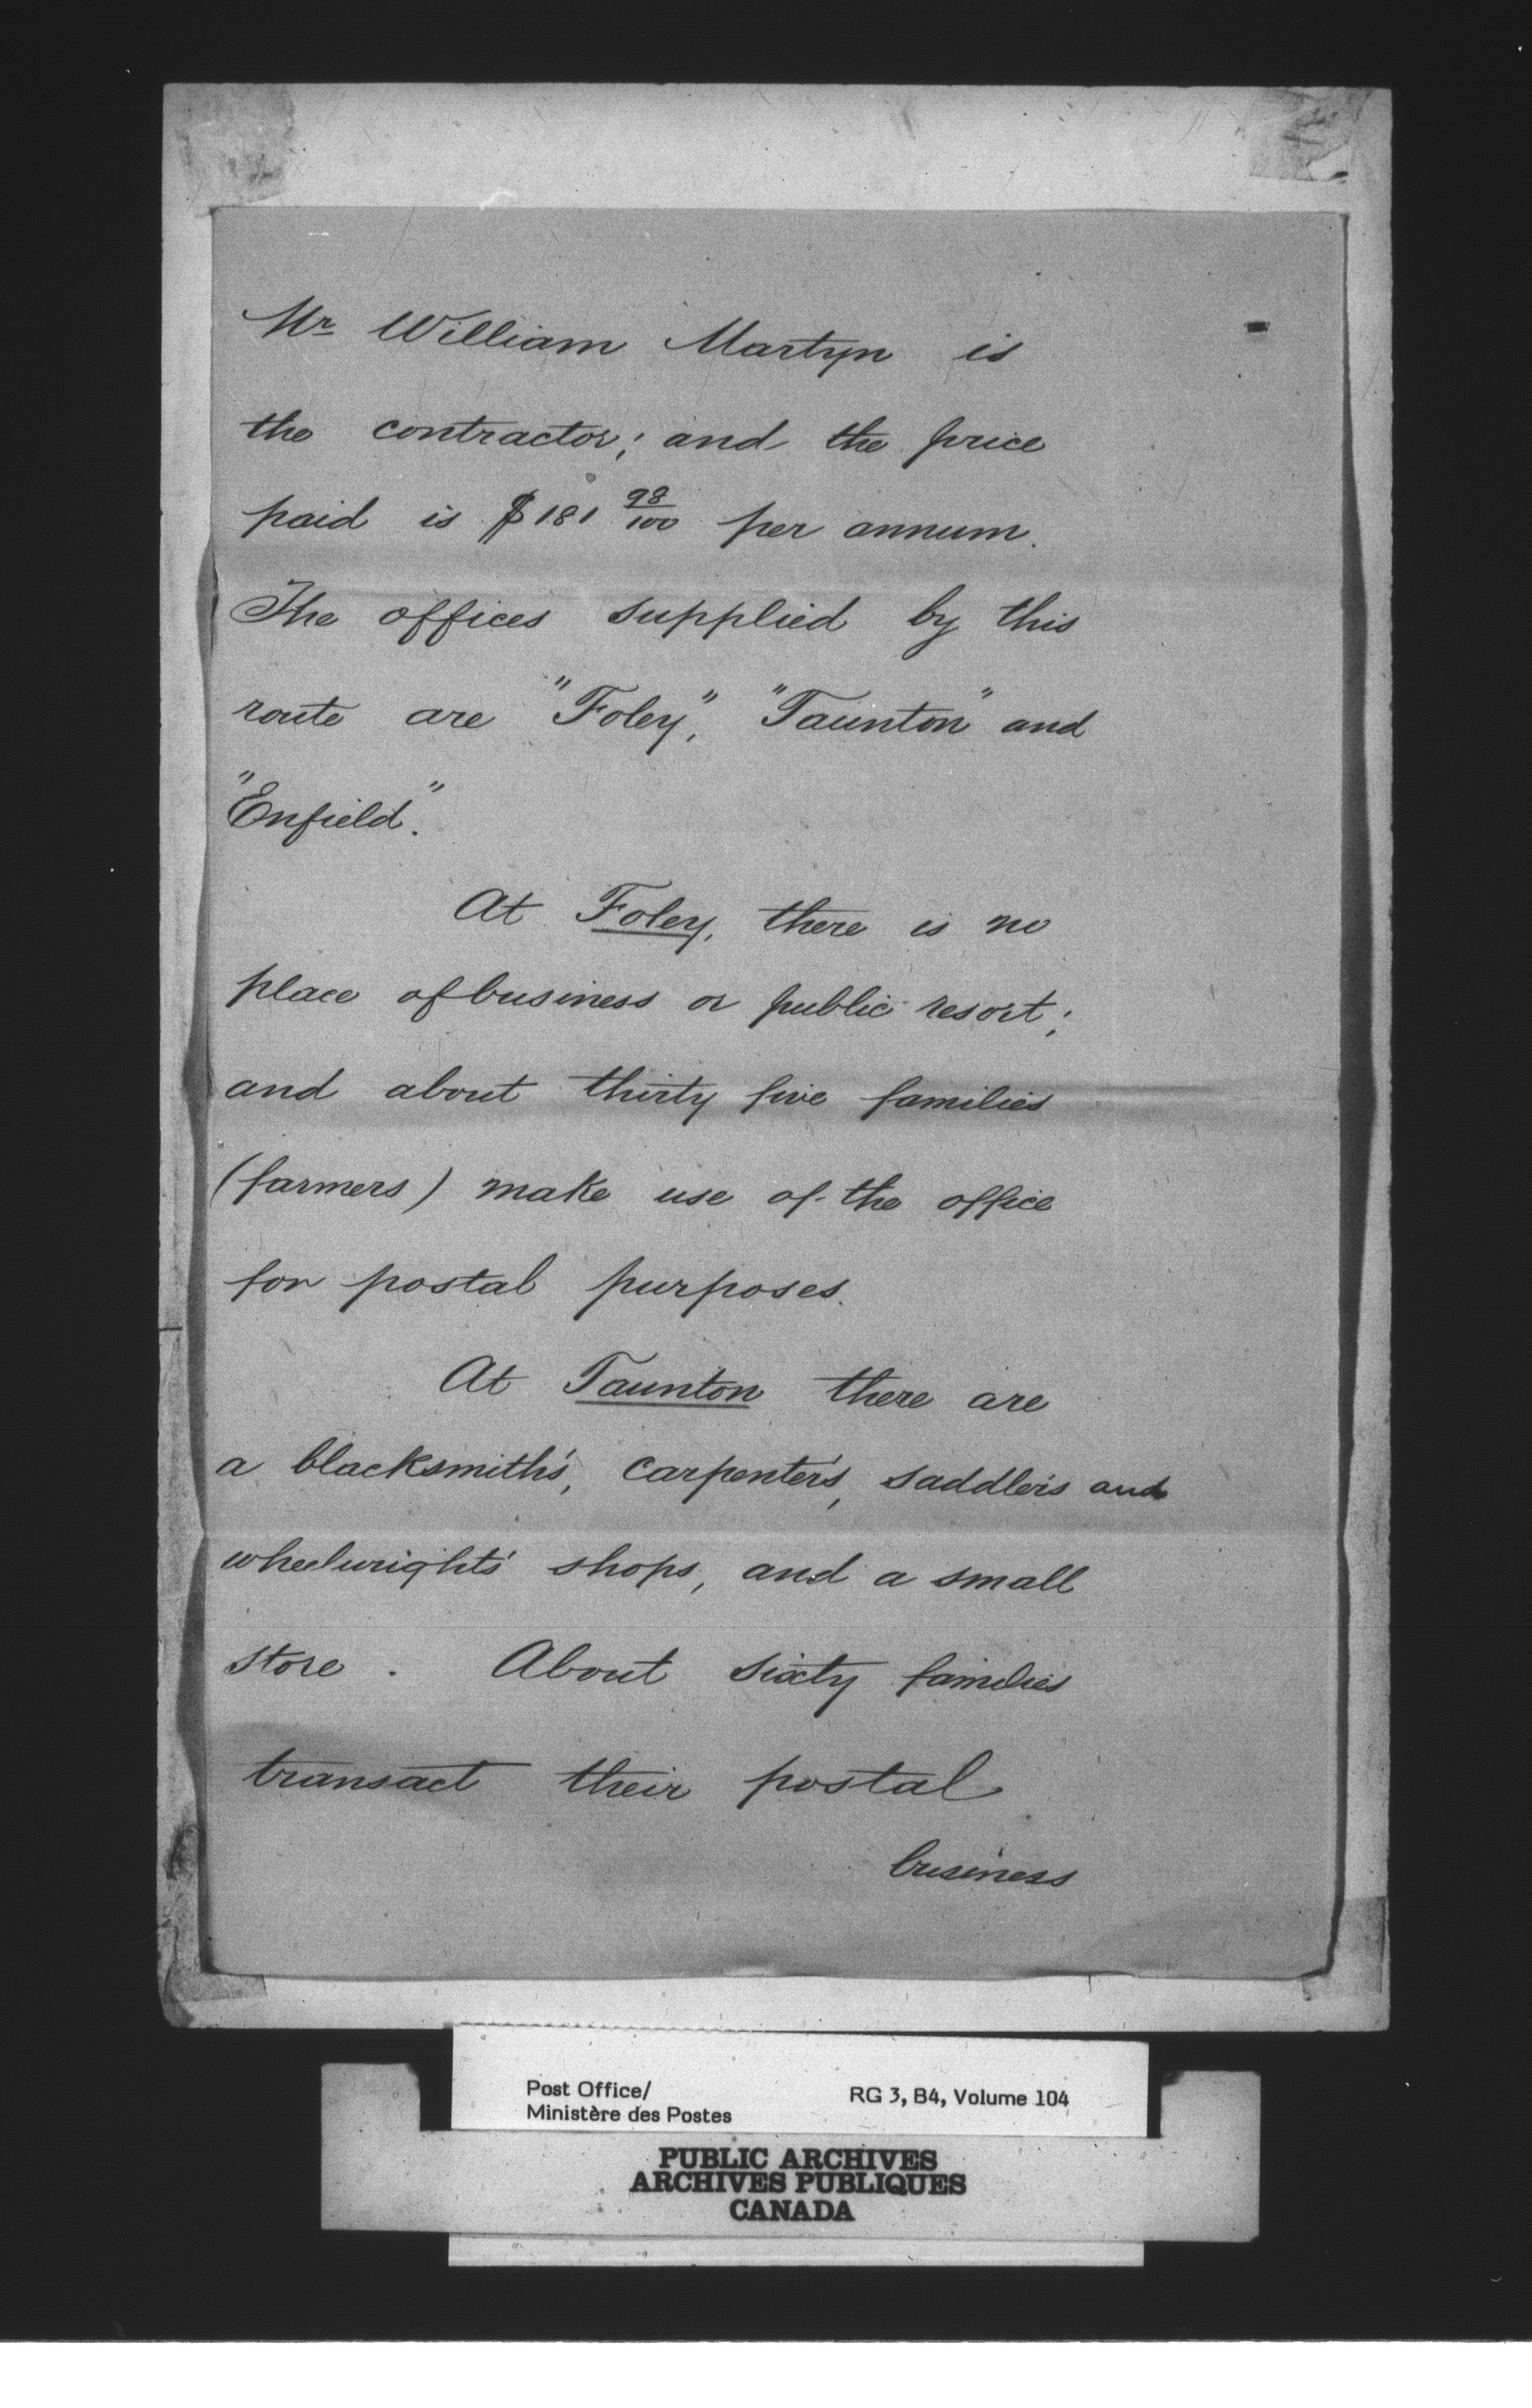 Mr William Martyn is
the contractor; and the price
paid is $181 98/100 per annum.
The offices supplied by this
route are "Foley", "Taunton" and
"Enfield".
At Foley, there is no
place of business or public resort;
and about thirty five families
(farmers) make use of the office
for postal purposes.
At Taunton there are
a blacksmith's, carpenter's, saddler's and
wheelwright's shops, and a small
store. About sixty families
transact their postal
business
Post Office/
Ministère des Postes
RG 3, B4, Volume 104
PUBLIC ARCHIVES
ARCHIVES PUBLIQUES
CANADA